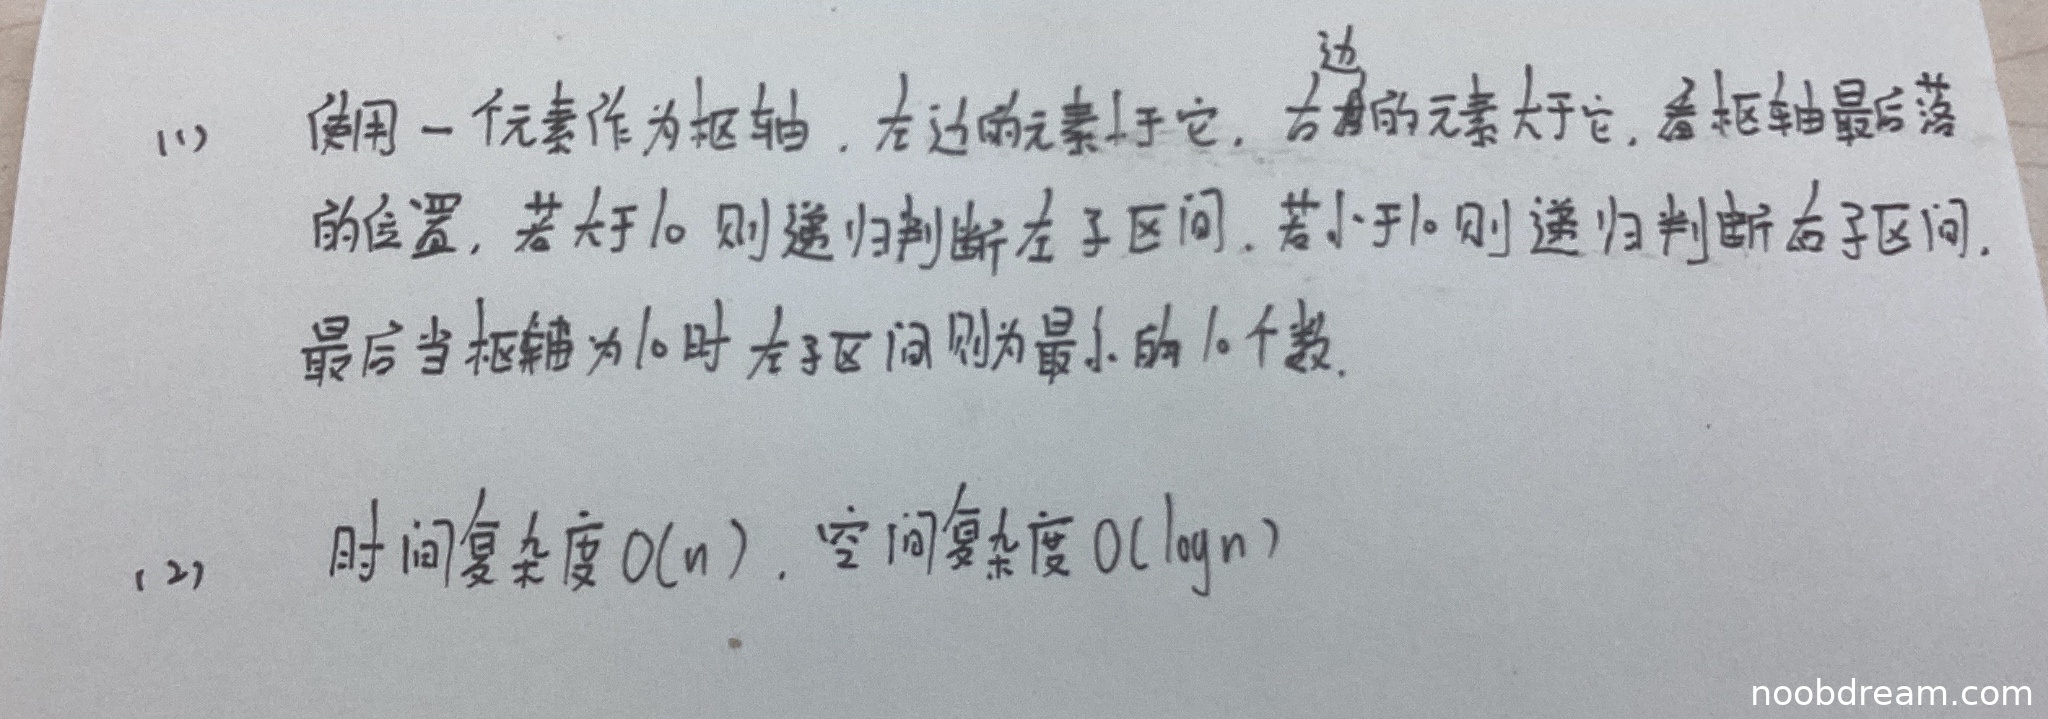 (1) 使用一个元素作为枢轴．左边的元素小于它．右边的元素大于它．看枢轴最后落
的位置，若大于10则递归判断左子区间．若小于10则递归判断右子区间．
最后当枢轴为10时左子区间则为最小的10个数．
(2) 时间复杂度O(n)．空间复杂度O(logn)
noobdream.com